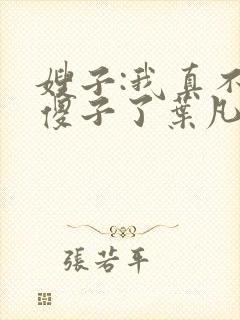 嫂子:我真不
傻子了葉凡
張若平